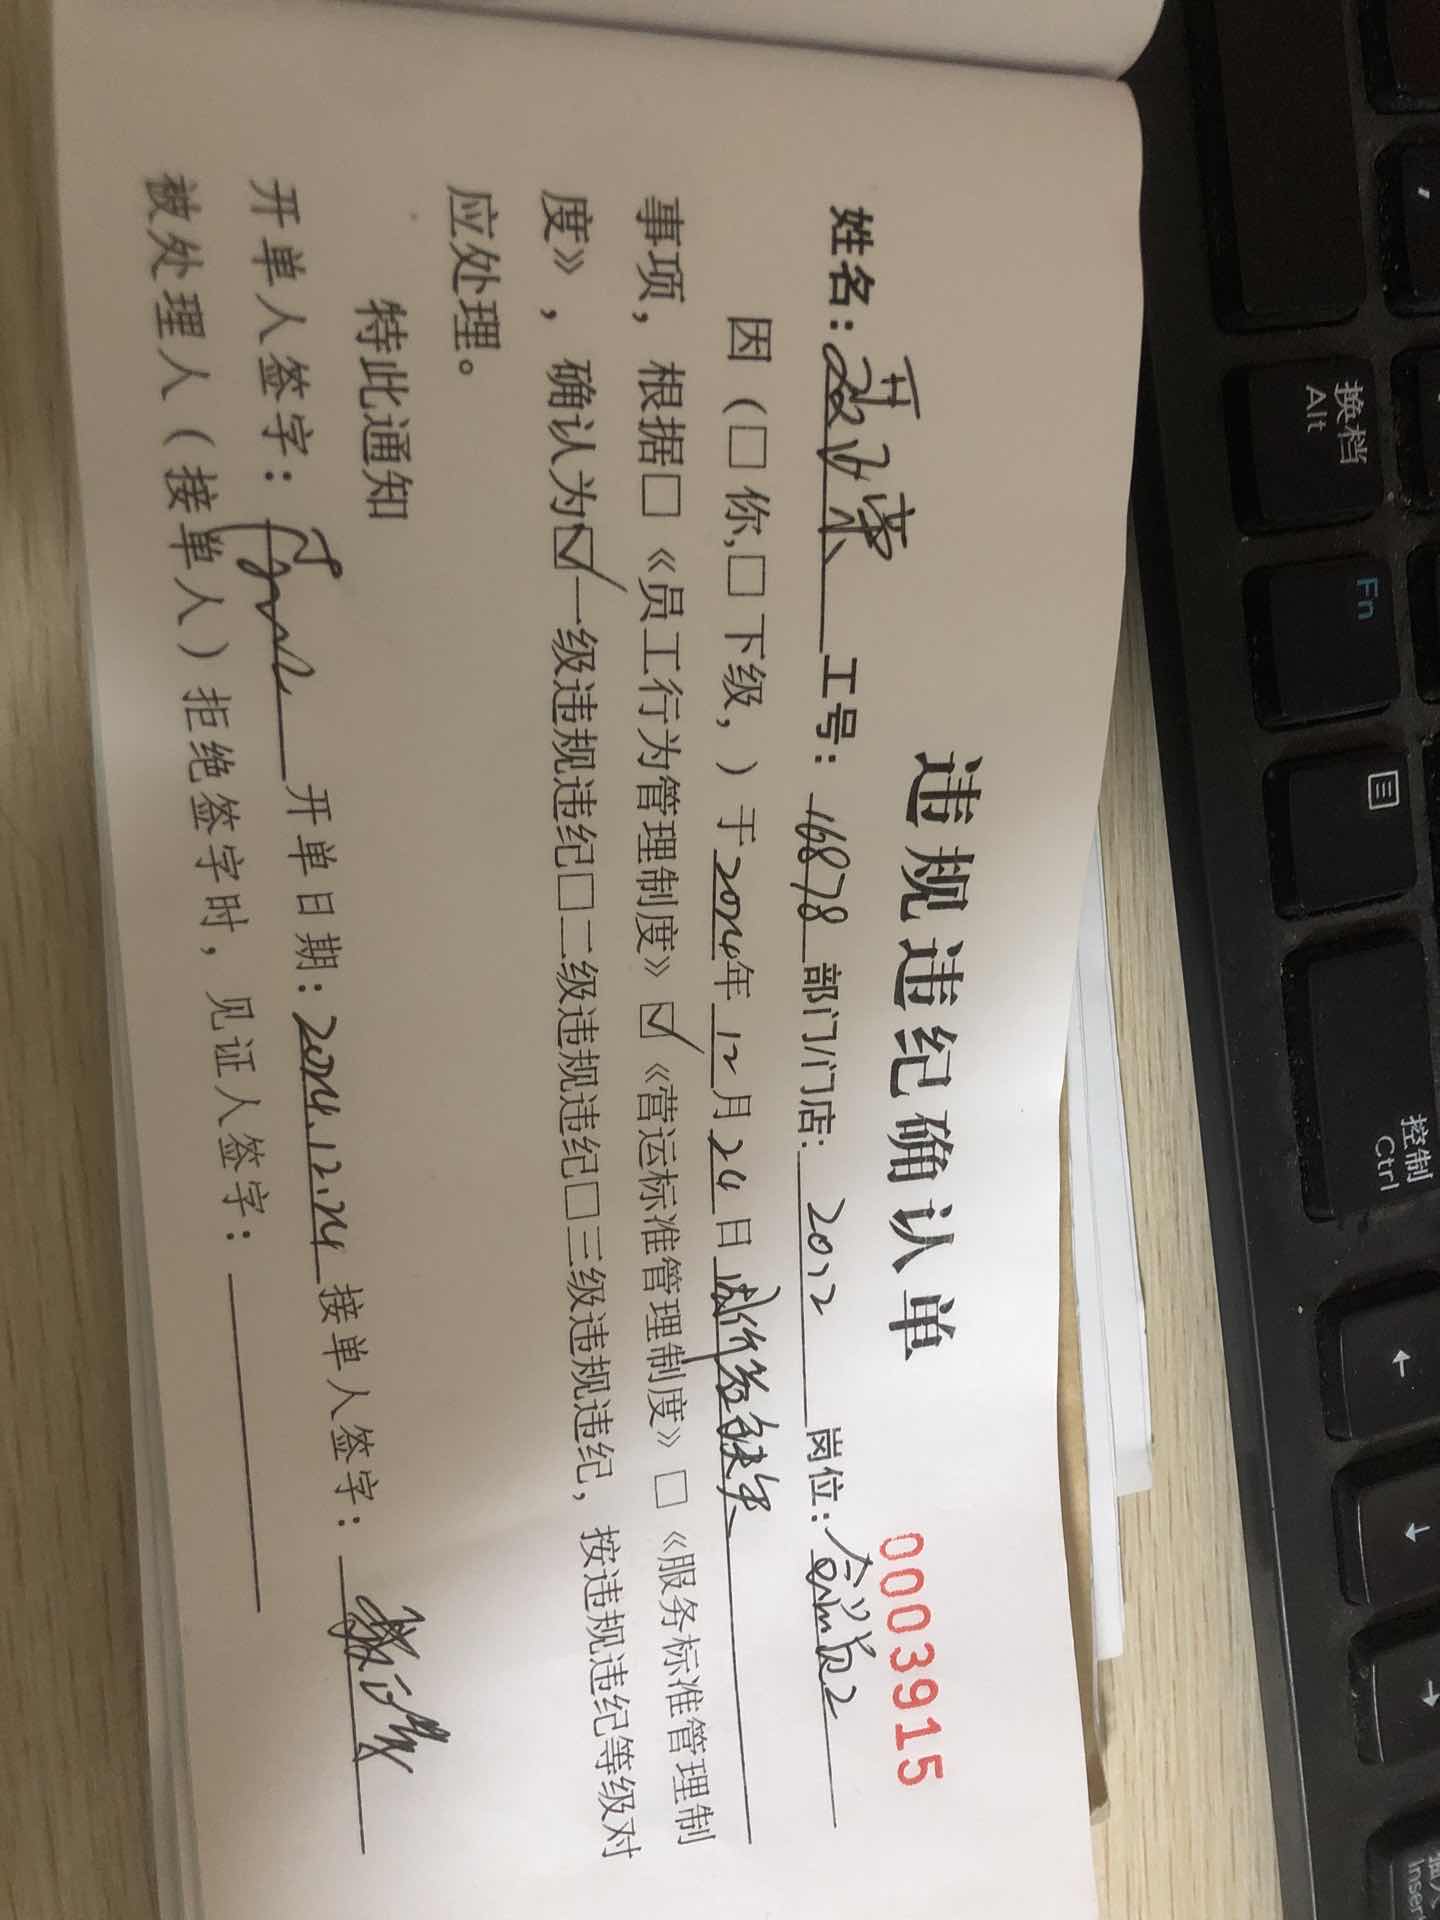 违规违纪确认单
0003915
姓名： 工号：16878 部门/门店：2022 岗位：
因（□你,□下级，）于2024年12月24日
事项，根据□《员工行为管理制度》☑《营运标准管理制度》□《服务标准管理制
度》，确认为☑一级违规违纪□二级违规违纪□三级违规违纪，按违规违纪等级对
应处理。
特此通知
开单人签字： 开单日期：2024.12.24 接单人签字：
被处理人（接单人）拒绝签字时，见证人签字：
换档
Alt
Fn
控制
Ctrl
←
↓
→
插入
Insert